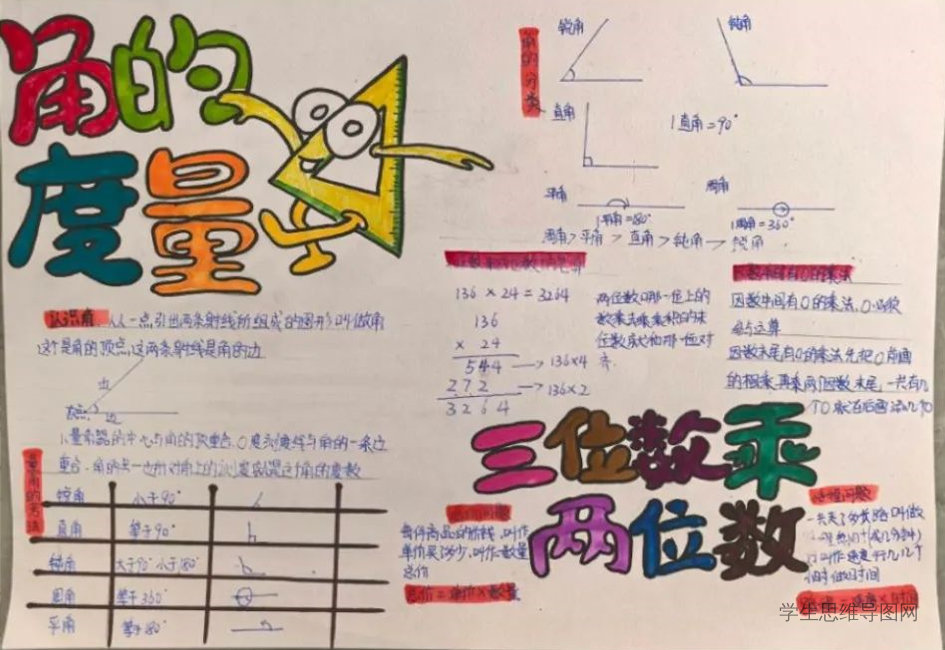 角的
度量
认识角
从一点引出两条射线所组成的图形叫做角
这个是角的顶点,这两条射线是角的边
边
边
1.量角器的中心与角的顶点重合,0度刻度线与角的一条边
重合.角的另一边所对角上的刻度就是这个角的度数
量角的方法
锐角 小于90°
直角 等于90°
钝角 大于90°小于180°
周角 等于360°
平角 等于180°
角的分类
锐角
钝角
直角
1直角=90°
平角
1平角=180°
周角
1周角=360°
周角>平角>直角>钝角
锐角
136×24=3264
136
× 24
544 → 136×4
272 → 136×2
3264
两位数哪一位上的
数乘
位数就和那一位对
齐.
因数中间有0的乘法
因数中间有0的乘法,0
参与运算
因数末尾有0的乘法先把0前面
的相乘再看两个因数末尾一共有几
个0就在后面添几个0
三位数乘
两位数
每件商品的价钱,叫作
单价买了多少,叫作数量
总价
总价=单价×数量
一共走了多长路叫做
叫作速度行几
时间
学生思维导图网